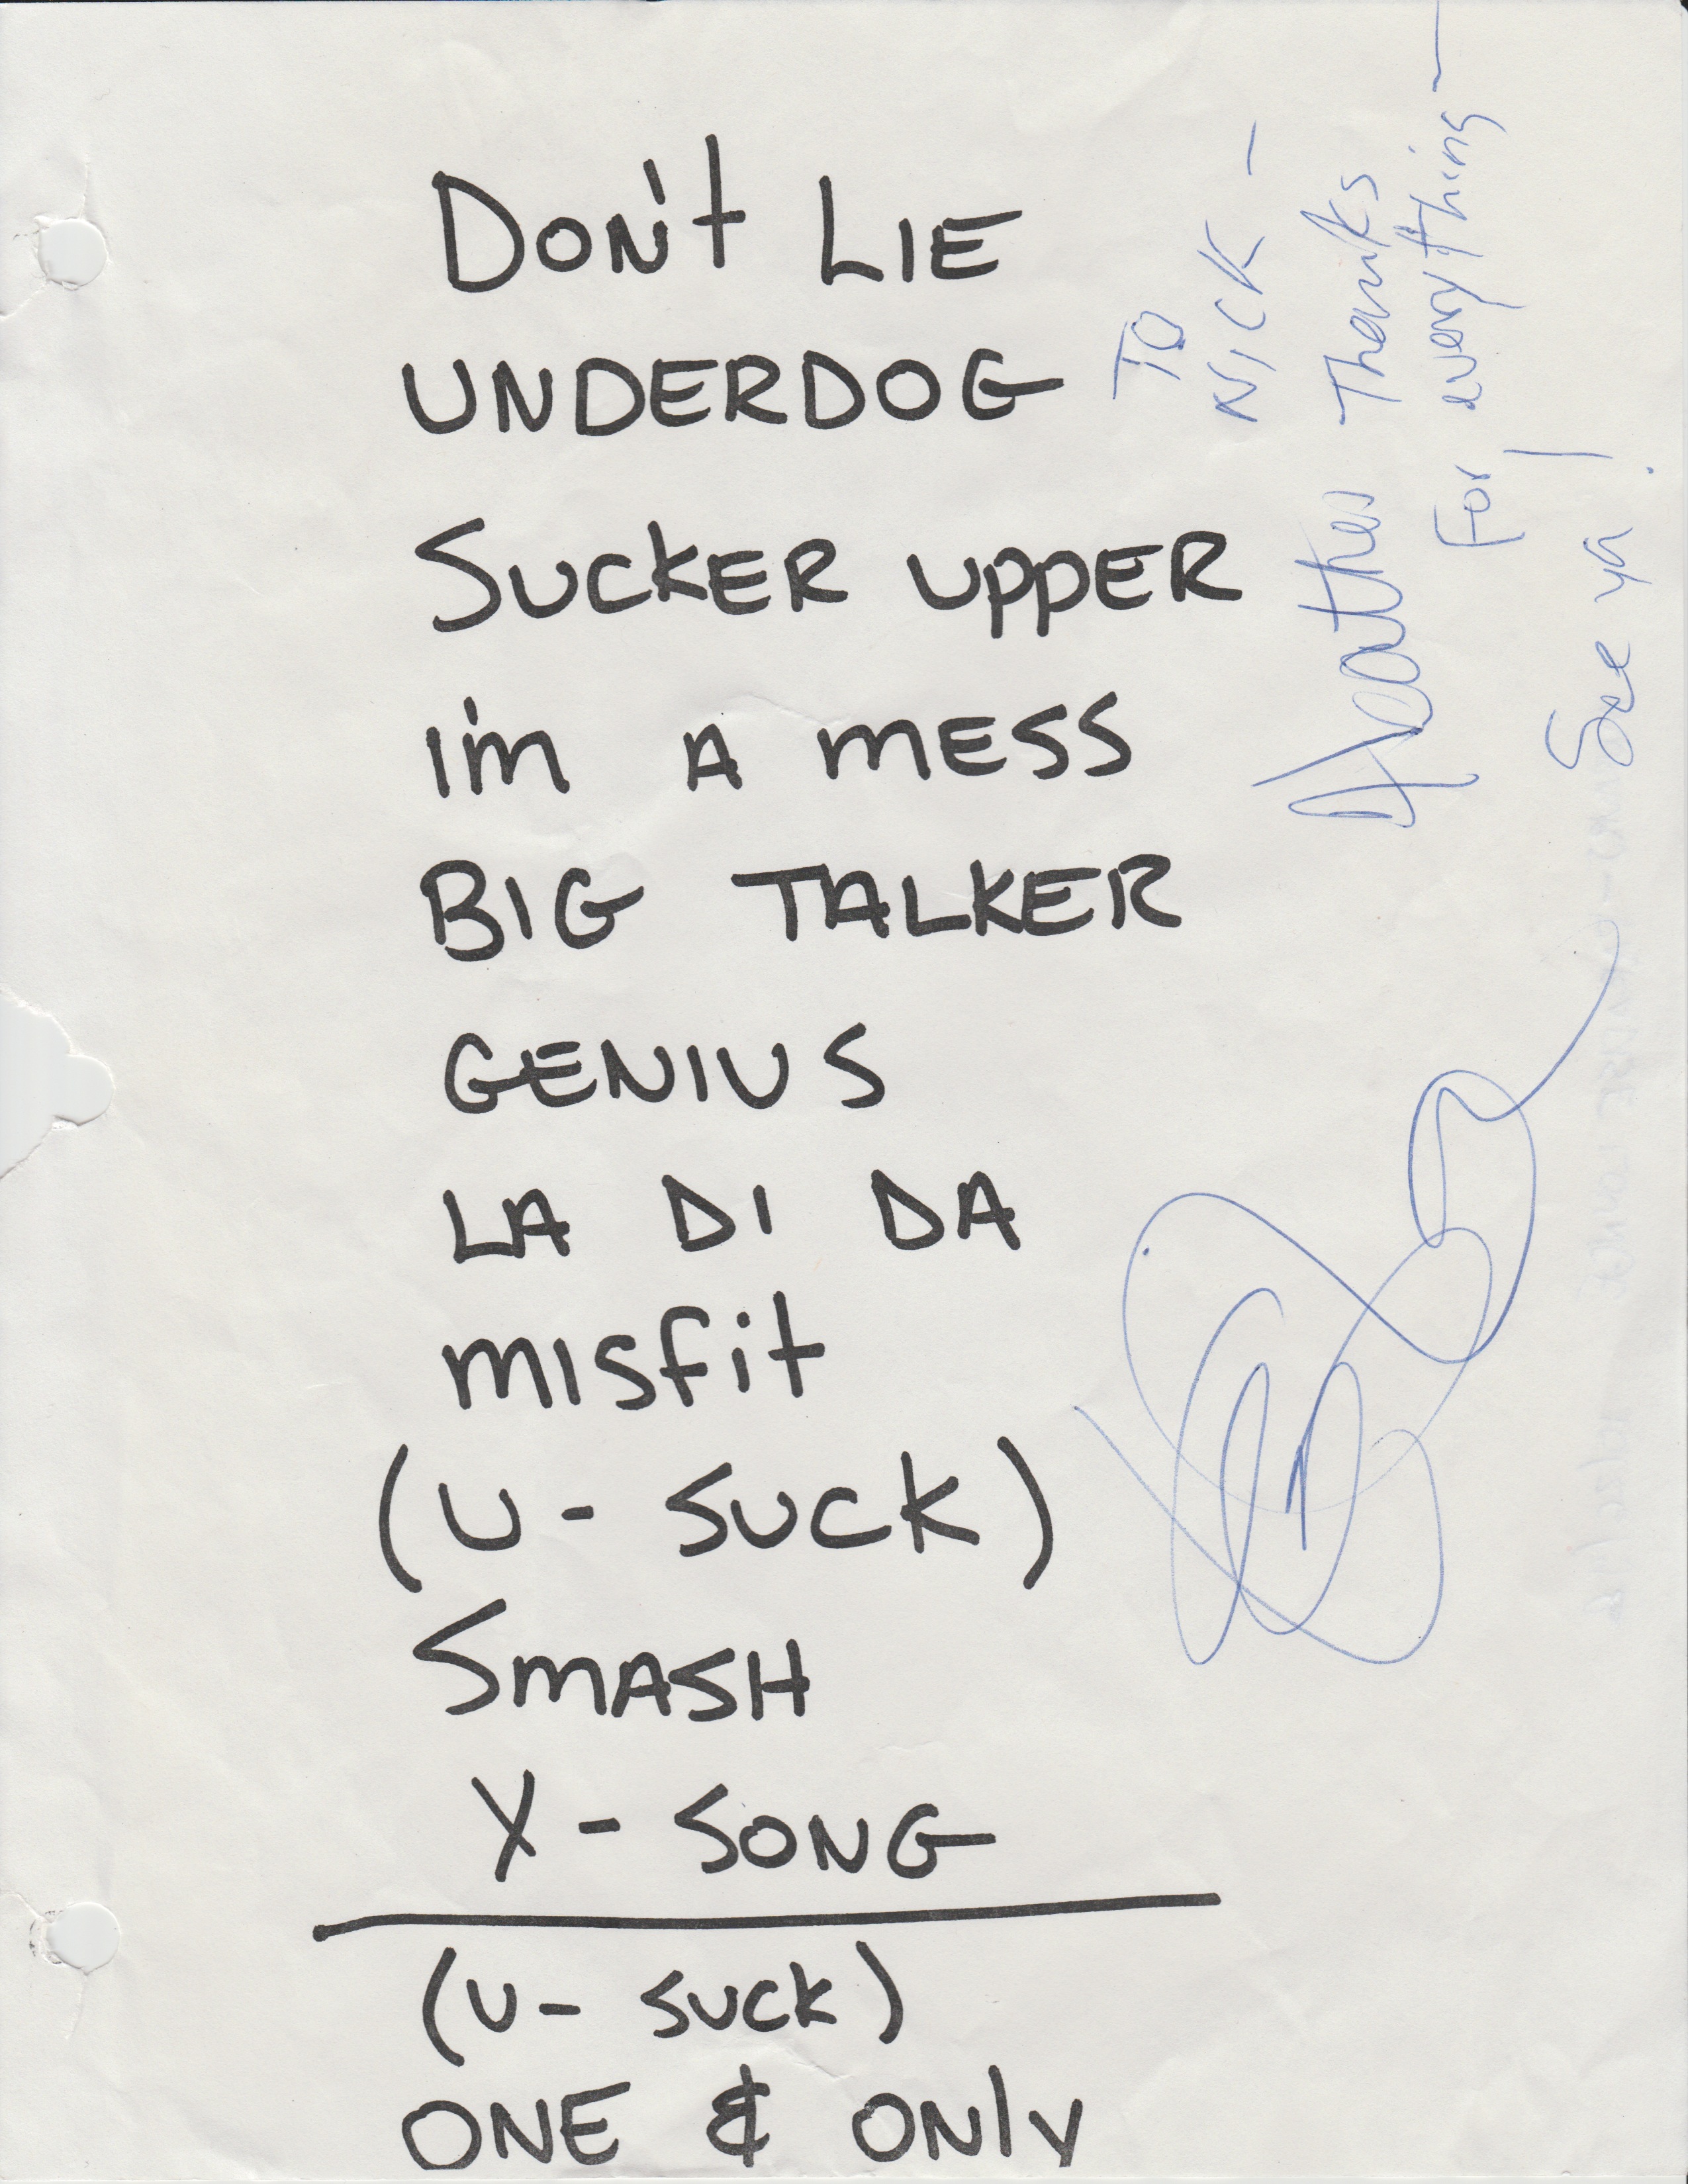 DON't LIE
UNDERDOG
SUCKER UPPER
I'm A mESS
BIG TALKER
GENIUS
LA DI DA
misfit
(U - SUCK)
SmASH
X - SONG
(U - SUCK)
ONE & ONly
TO
NICK -
Thanks
For everything -
Heather
See ya!